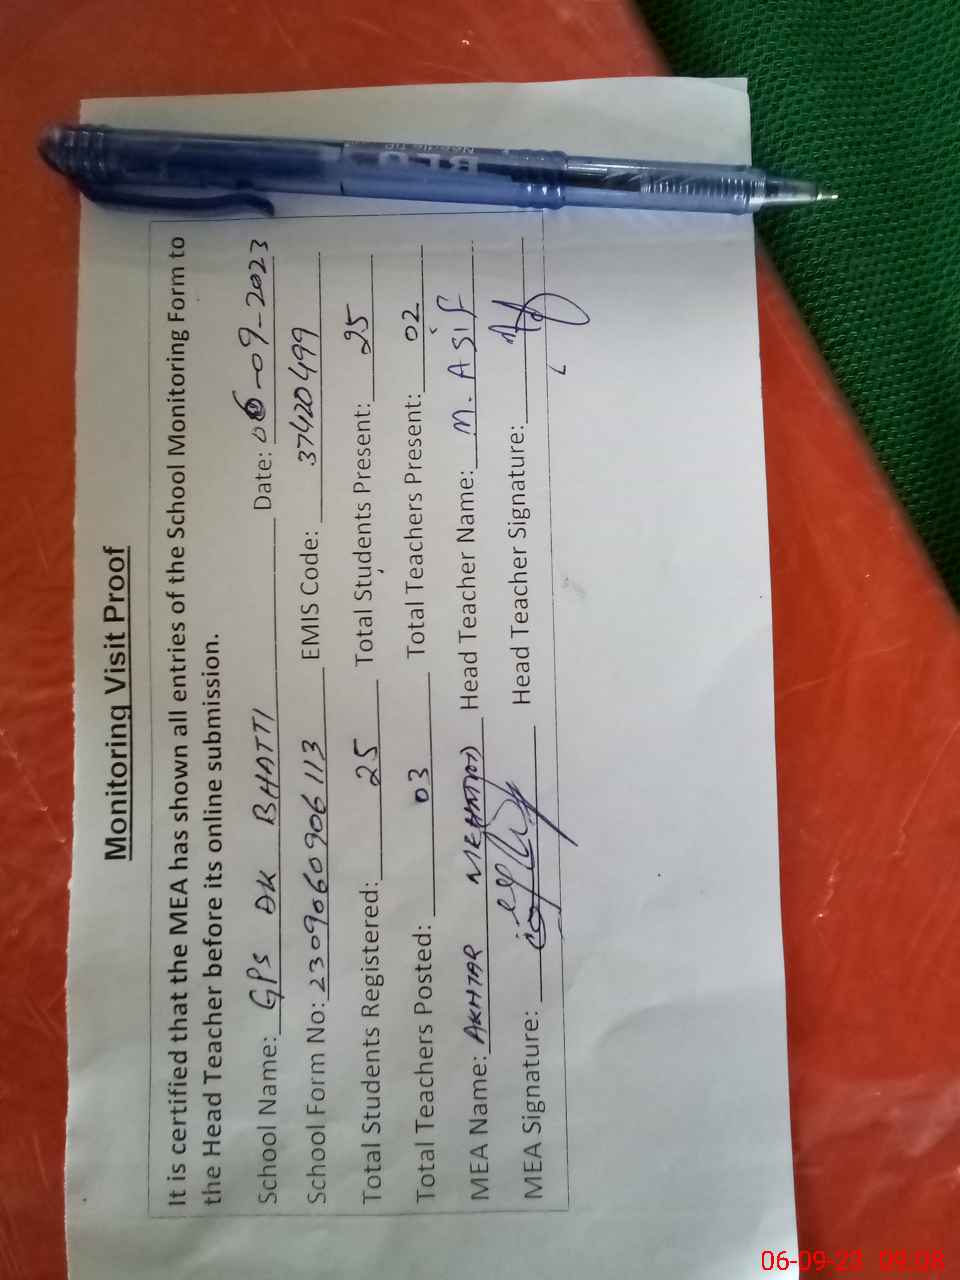 Monitoring Visit Proof
It is certified that the MEA has shown all entries of the School Monitoring Form to
the Head Teacher before its online submission.
School Name: GPS DK BHATTI Date: 06-09-2023
School Form No: 2309060906113 EMIS Code: 37420499
Total Students Registered: 25 Total Students Present: 25
Total Teachers Posted: 03 Total Teachers Present: 02
MEA Name: AKHTAR Head Teacher Name: M. ASif
MEA Signature: Head Teacher Signature:
Needle Tip
06-09-23 09:08